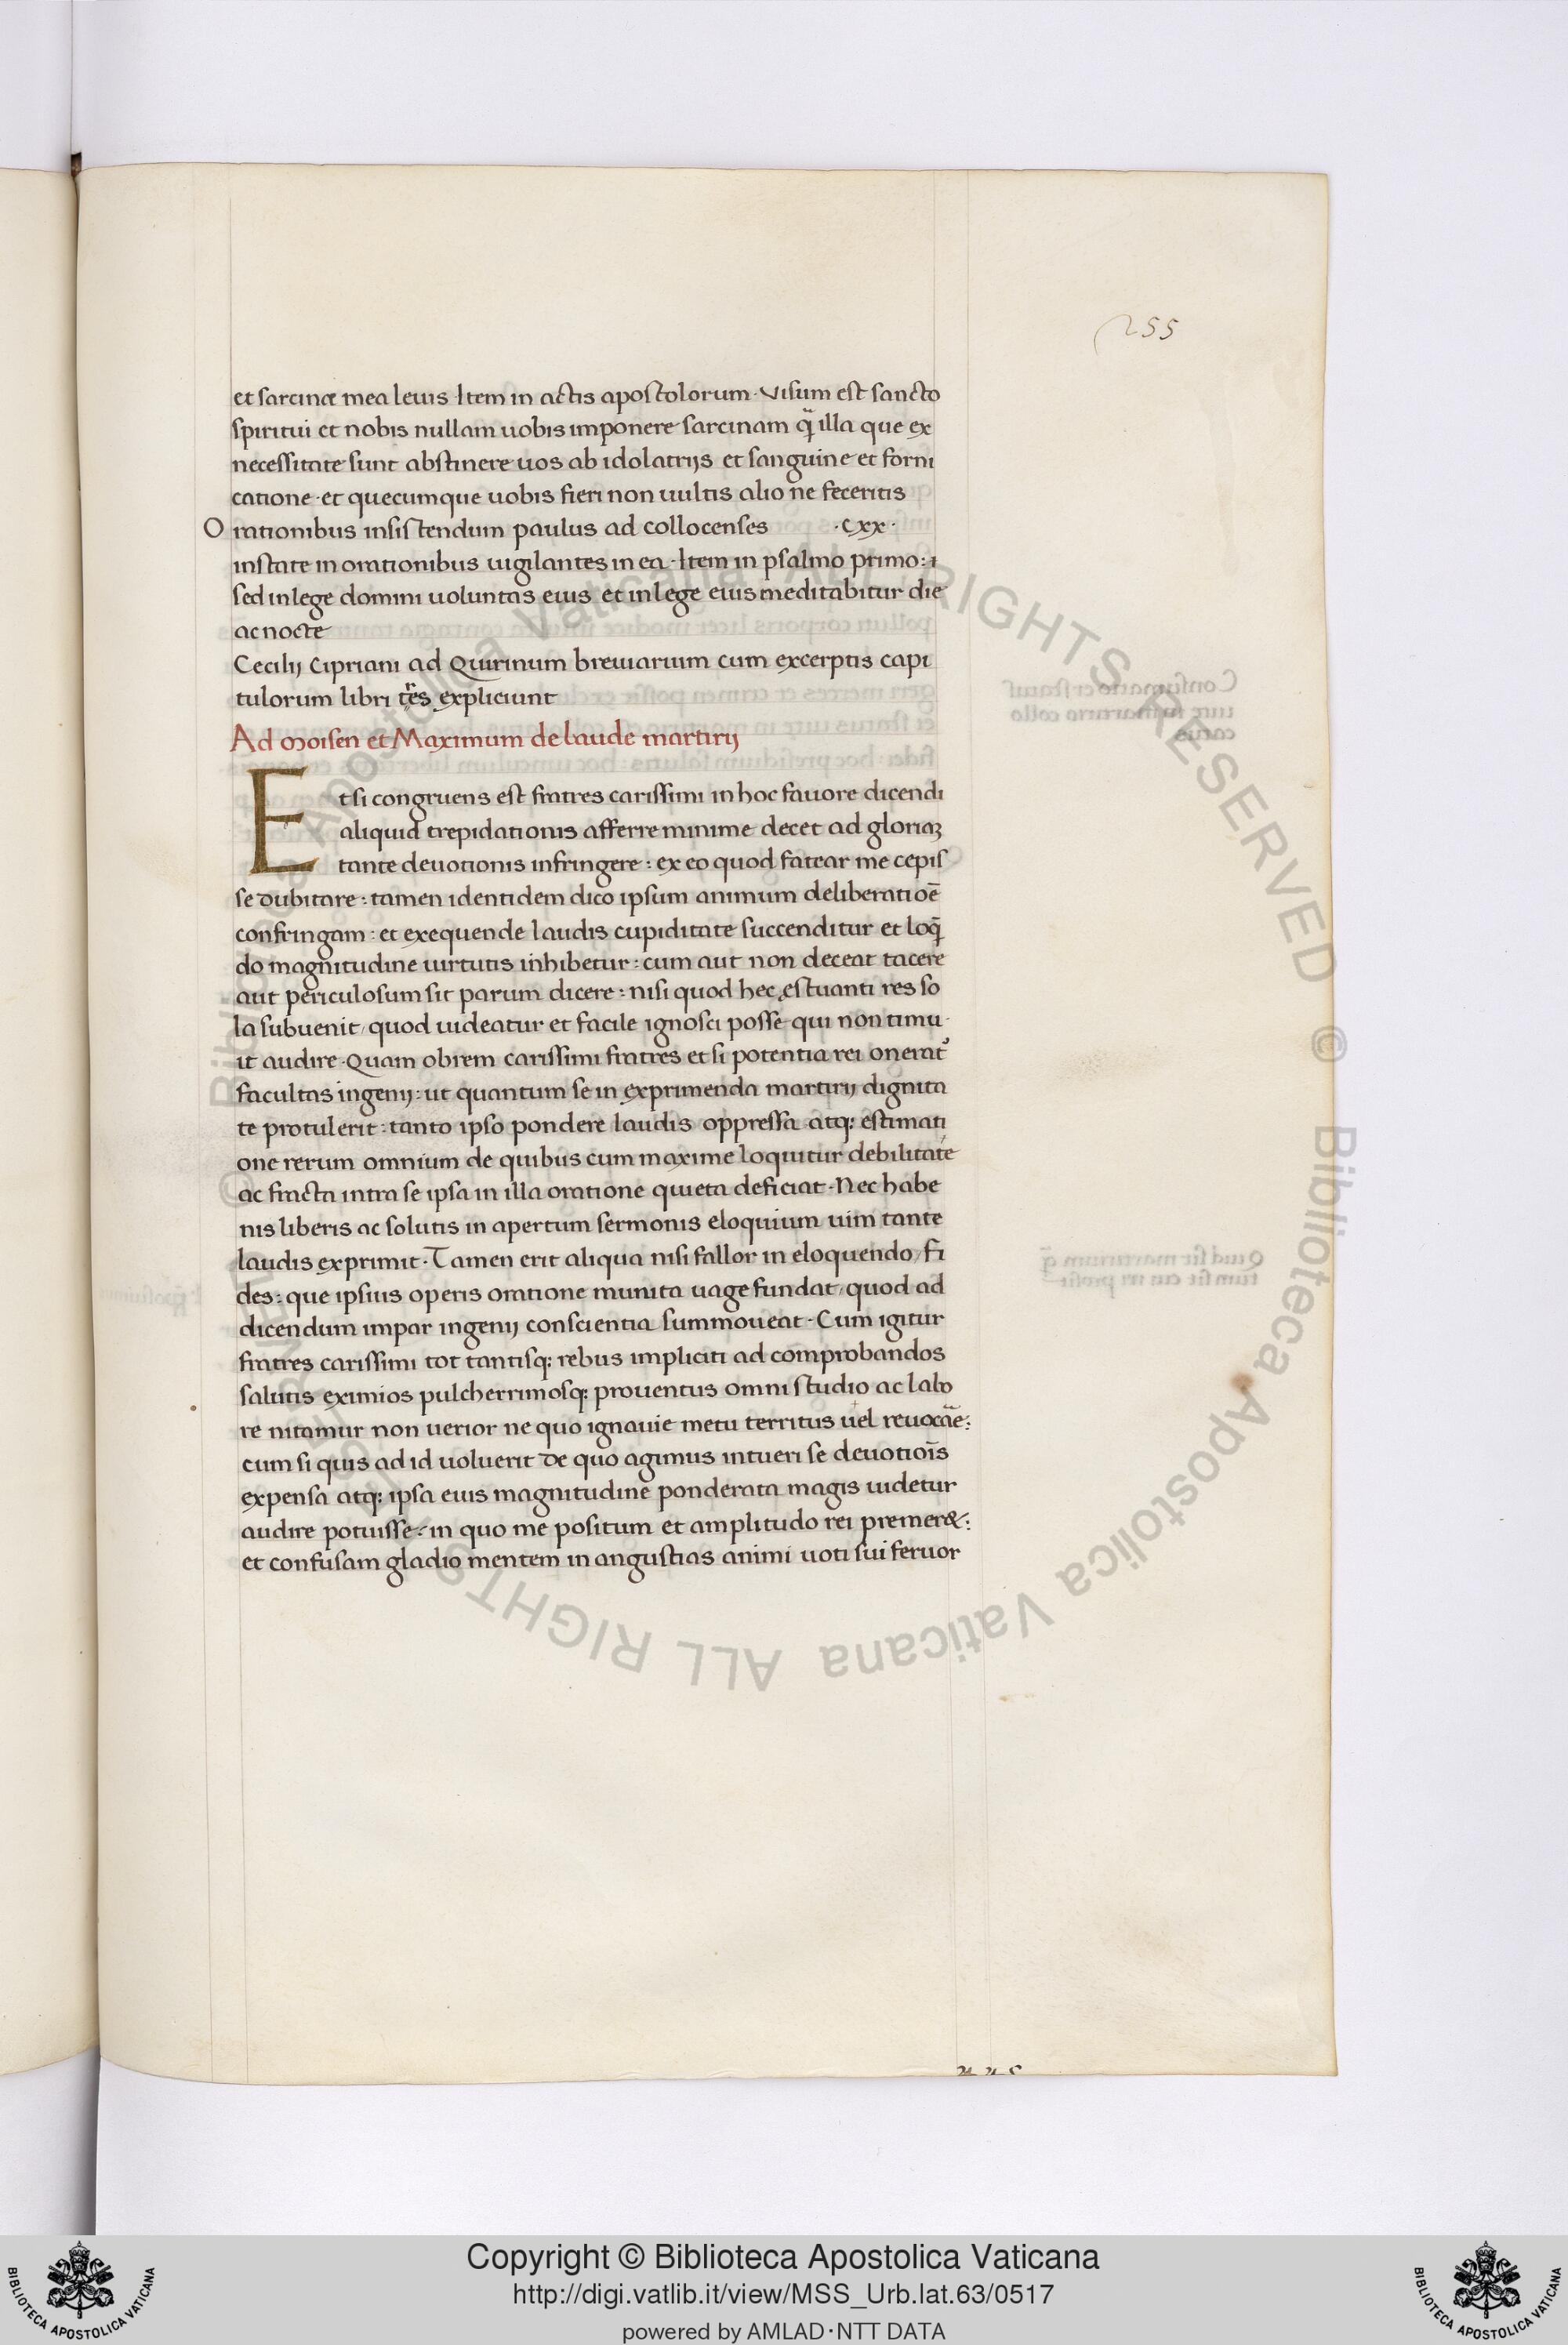 255
et sarcina mea leuis · Item in actis apostolorum · Visum est sancto
spiritui et nobis nullam uobis imponere sarcinam q̃ illa que ex
necessitate sunt abstinere uos ab idolatrijs et sanguine et forni
catione · et quecumque uobis fieri non uultis alio ne feceritis
Orationibus insistendum paulus ad collocenses · cxx ·
instate in orationibus uigilantes in ea · Item in psalmo primo : i
sed in lege domini uoluntas eius et in lege eius meditabitur die
ac nocte
Cecilij Cipriani ad Quirinum breuiarium cum excerptis capi
tulorum libri expliciunt
Ad Moisen et Maximum de laude martirij
Et si congruens est fratres carissimi in hoc fauore dicendi
aliquid trepidationis afferre minime decet ad gloriaꝫ
tante deuotionis infringere : ex eo quod fatear me cepis
se dubitare : tamen identidem dico ipsum animum deliberatioē
confringam : et exequende laudis cupiditate succenditur et loq̄
do magnitudine uirtutis inhibetur : cum aut non deceat tacere
aut periculosum sit parum dicere : nisi quod hec ęstuanti res so
la subuenit / quod uideatur et facile ignosci posse qui non timu
it audire · Quam obrem carissimi fratres et si potentia rei onerat᾽
facultas ingenij : ut quantum se in exprimenda martirij dignita
te protulerit : tanto ipso pondere laudis oppressa atq: estimati
one rerum omnium de quibus cum maxime loquitur debilitate
ac fracta intra se ipsa in illa oratione quieta deficiat · Nec habe
nis liberis ac solutis in apertum sermonis eloquium uim tante
laudis exprimit · Tamen erit aliqua nisi fallor in eloquendo / fi
des : que ipsius operis oratione munita uage fundat / quod ad
dicendum impar ingenij conscientia summoueat · Cum igitur
fratres carissimi tot tantisq: rebus impliciti ad comprobandos
salutis eximios pulcherrimosq: prouentus omni studio ac labo
re nitamur non uerior ne quo ignauie metu territus uel reuocāe :
cum si quis ad id uoluerit de quo agimus intueri se deuotioīs
expensa atq: ipsa eius magnitudine ponderata magis uidetur
audire potuisse : in quo me positum et amplitudo rei premer& :
et confusam gladio mentem in angustias animi uoti sui feruor
© Biblioteca Apostolica Vaticana ALL RIGHTS RESERVED © Biblioteca Apostolica Vaticana ALL RIGHTS RESERVED
Copyright © Biblioteca Apostolica Vaticana
http://digi.vatlib.it/view/MSS_Urb.lat.63/0517
powered by AMLAD·NTT DATA
BIBLIOTECA APOSTOLICA VATICANA
BIBLIOTECA APOSTOLICA VATICANA